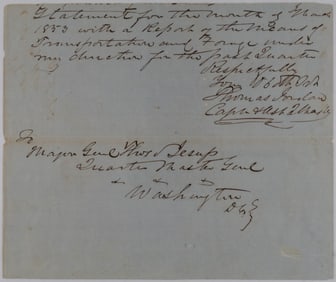 Statement for the month of
1853 with a Report of the Means of
Transportation and Forage under
my direction for the past Quarter
Respectfully
Your Obt Svt
Thomas Jordan
Capt &
To
Major Genl Thos Jesup
Quarter Master Genl
Washington
D C